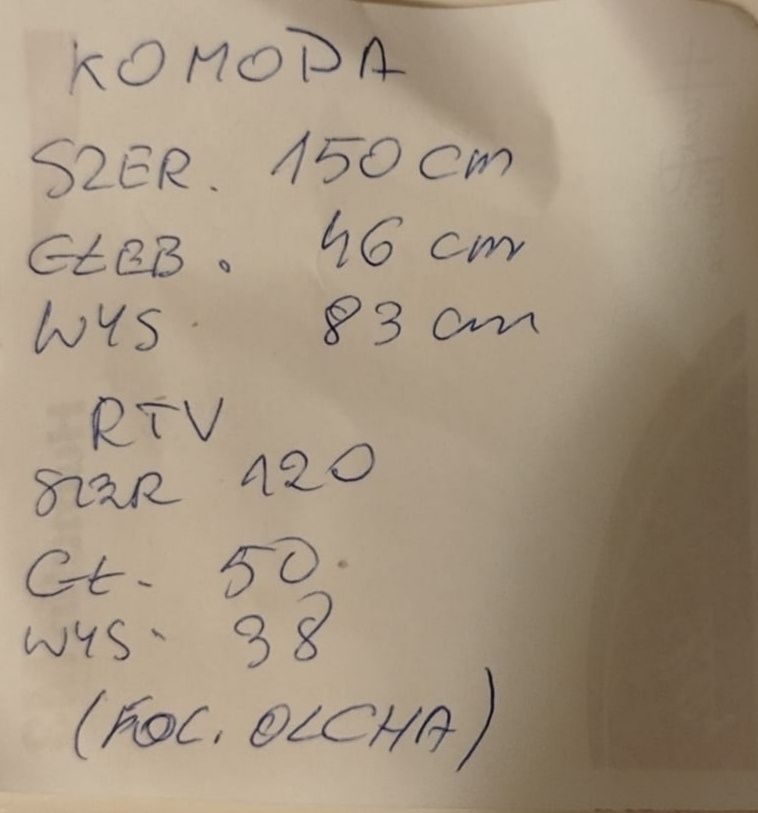 KOMODA
SZER. 150 cm
GŁĘB. 46 cm
WYS 83 cm
RTV
SZER 120
GŁ. 50
WYS. 38
(KOL. OLCHA)